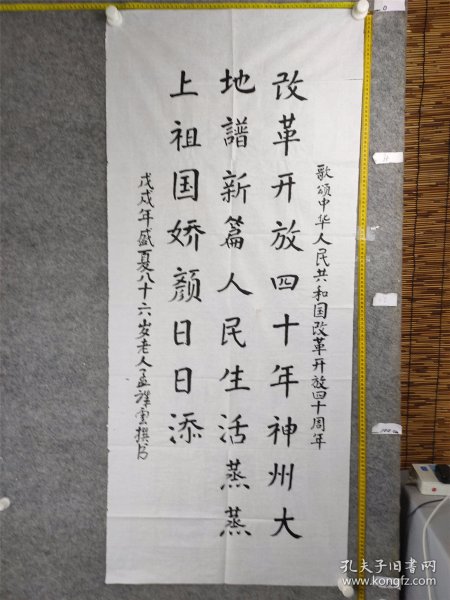 歌颂中华人民共和国改革开放四十周年
改革开放四十年神州大
地譜新篇人民生活蒸蒸
上祖国娇颜日日添
戊戌年盛夏八十六岁老人孟
孔夫子旧书网
www.kongfz.com